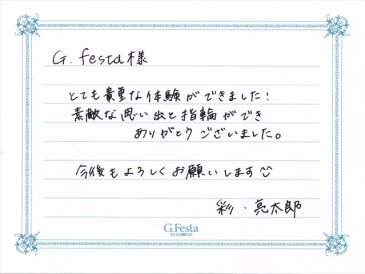 G. festa様
とても貴重な体験ができました!
素敵な思い出と指輪ができ
ありがとうございました。
今後もよろしくお願いします
彩・亮太郎
G.Festa
DIAMOND